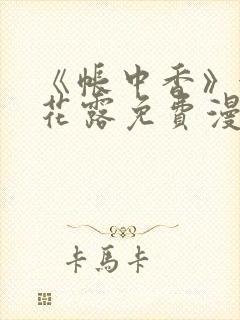 《帐中香》
花露免费漫
卡馬卡